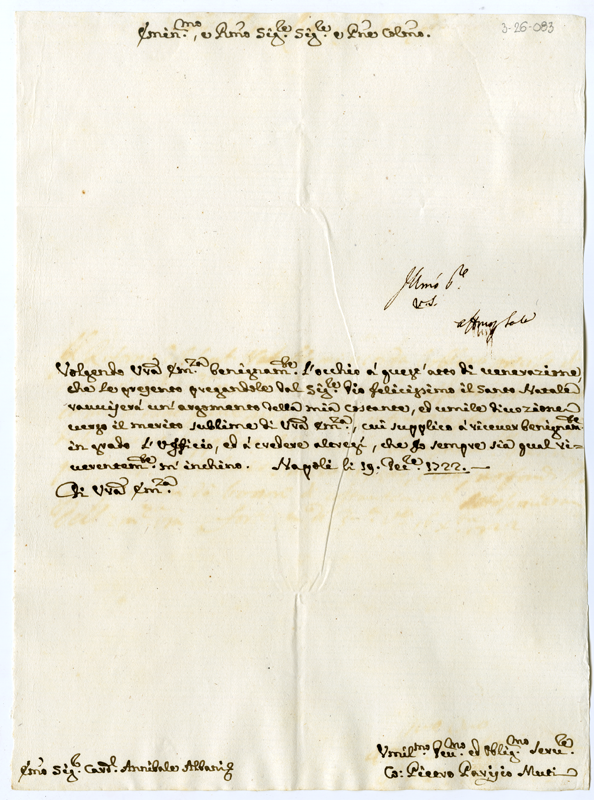 3-26-083
Emin.mo, e Rmo Sig.re Sig.re e Pne Colmo.
Illmo S.re
Volgendo Vrã Em.za benignam.te l'occhio á quest'atto di venerazione
che le presento pregandole dal Sig.re Dio felicissimo il Santo Natale
ravviserá un'argomento della mia costante, ed umile divozione
verso il merito sublime di Vrã Em.za, cui supplico á ricever benignam.te
in grado l'Ufficio, ed á credere altresì, che Io sempre sia qual ri-
verentem.te m'inchino. Napoli li 19. Xbre 1722.
Di Vrã Em.za
Umil.mo Deu.mo ed Oblig.mo Seru.re
Emo Sig.r Card.l Annibale Albani
Co: Pietro Parisio Muti